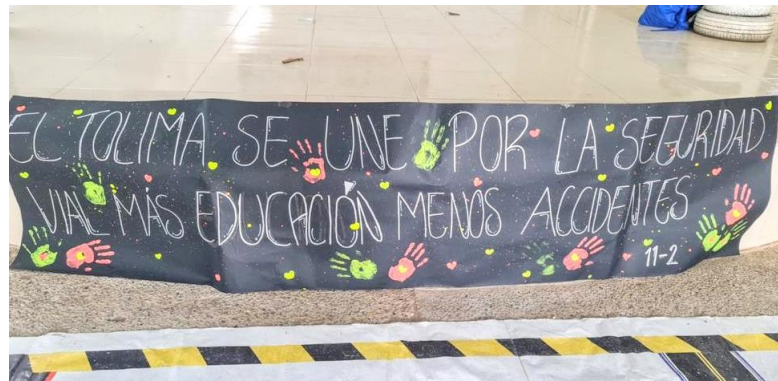 EL TOLIMA SE UNE POR LA SEGURIDAD
VIAL MÁS EDUCACIÓN MENOS ACCIDENTES
11-2